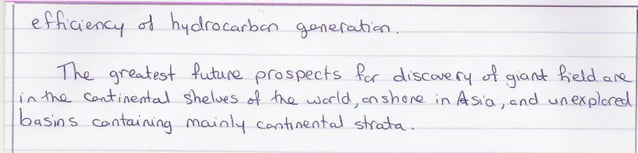 efficiency of hydrocarbon generation.
The greatest future prospects for discovery of giant field are
in the continental shelves of the world, onshore in Asia, and unexplored
basins containing mainly continental strata.